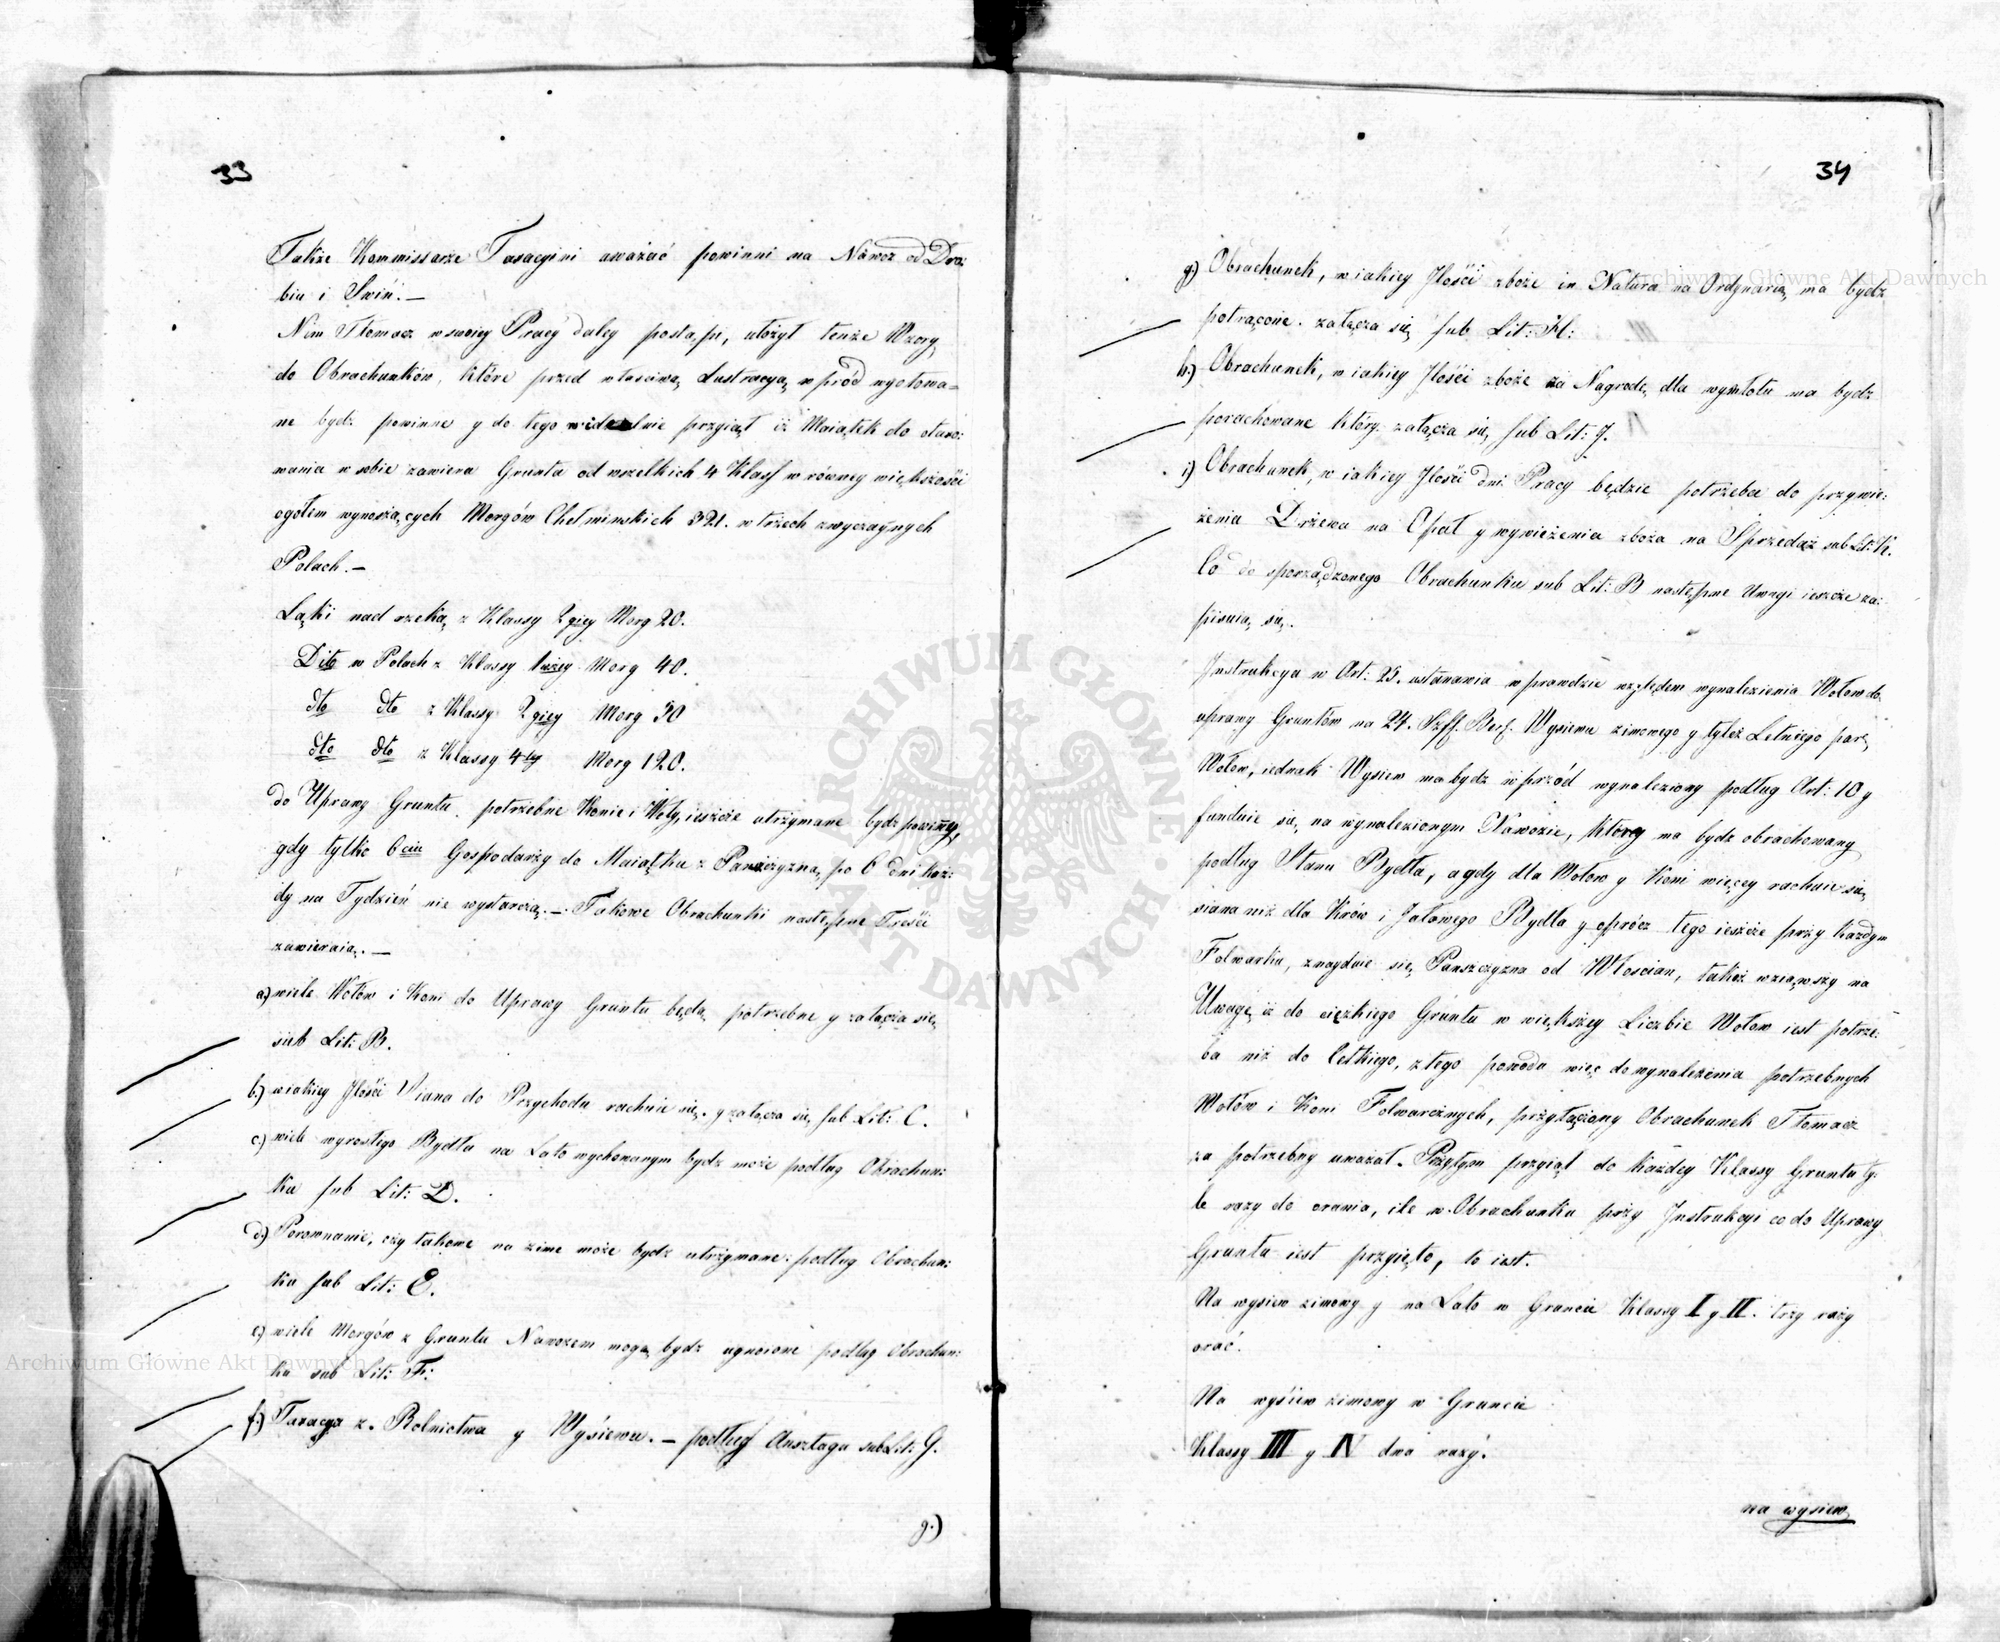 33
Także Kommissarze Taxacyini uważać powinni na Nawoz od Dro:
biu i Swiń. —
Nim Tłomacz w swoiey Pracy daley postąpił, ułożył tenże Wzory
do Obrachunków, które przed własciwą Lustracyą wprzód wygotowa=
ne bydź powinne y do tego przyiął iż Maiątek do otaxo:
wania w sobie zawiera Grunta od wszelkich 4 Klass w równey większości
ogółem wynoszących Morgów Chełminskich 321. w trzech zwyczaynych
Polach. —
Łąki nad rzeką z Klassy 2giey Morg 20.
Dito w Polach z Klassy 1wszey Morg 40.
dto dto z Klassy 2giey Morg 30
dto dto z Klassy 4tey Morg 120.
do Uprawy Gruntu potrzebne Konie i Woły, ieszcze utrzymane bydź powinny,
gdy tylko 6ciu Gospodarzy do Maiątku z Panszczyzną po 6 dni każ:
dy na Tydzień nie wystarczą. — Takowe Obrachunki następne Treści
zawieraią. —
a) wiele Wołów i Koni do Uprawy Gruntu będą potrzebne y załącza się
sub Lit: B.
b.) w iakiey Jlości Siana do Przychodu rachuie się y załącza się sub Lit: C.
c.) wiele wyrosłego Bydła na Lato wychowanym bydź może podług Obrachun:
ku sub Lit: D.
d.) Porownanie, czy takowe na zime może bydź utrzymane podług Obrachun:
ku sub Lit: E.
e.) wiele Morgów z Gruntu Nawozem mogą bydź ugnoione podług Obrachun:
ku sub Lit: F:
f.) Taxacya z Rolnictwa y Wysiewu. — podług Anszlagu sub Lit: G.
g.)
34
g) Obrachunek, w iakiey Jlości zboże in Natura na Ordynaryą ma bydź
potrącone. załącza się sub Lit: H:
h.) Obrachunek, w iakiey Jlości zboże za Nagrodę dla wymłotu ma bydź
porachowane który załącza się sub Lit: J.
i) Obrachunek, w iakiey Jlości dni Pracy będzie potrzeba do przywie:
żenia Drzewa na Opał y wywieżenia zboża na Sprzedaż sub Lit: K.
Co do sporządzonego Obrachunku sub Lit: B następne Uwagi ieszcze za:
pisuią się.
Instrukcya w Art: 25. ustanawia wprawdzie względem wynalezienia Wołow do
uprawy Gruntów na 24. Szff. Berl. Wysiewu zimowego y tyleż Letniego parę
Wołow, iednak Wysiew ma bydź wprzód wynaleziony podług Art: 10 y
funduie się na wynalezionym Nawozie, ktorey ma bydź obrachowany
podług Stanu Bydła, a gdy dla Wołow y Koni więcey rachuie się
siana niż dla Krów i Jałowego Bydła y oprócz tego ieszcze przy każdym
Folwarku, znayduie się Panszczyzna od Włoscian, takoż wziąwszy na
Uwagę iż do cięzkiego Gruntu w większey Liczbie Wołow iest potrze:
ba niż do letkiego, z tego powodu więc do wynalezienia potrzebnych
Wołów i Koni Folwarcznych, przyłączony Obrachunek Tłomacz
za potrzebny uważał. Przytym przyiął do każdey Klassy Gruntu ty:
le razy do orania, ile w Obrachunku przy Instrukcyi co do Uprawy
Gruntu iest przyięto, to iest.
Na wysiew zimowy y na Lato w Gruncie Klassy I y II. trzy razy
orać.
Na wysiew zimowy w Gruncie
Klassy III y IV dwa razy.
na wysiew
Archiwum Główne Akt Dawnych
Archiwum Główne Akt Dawnych
ARCHIWUM GŁÓWNE AKT DAWNYCH